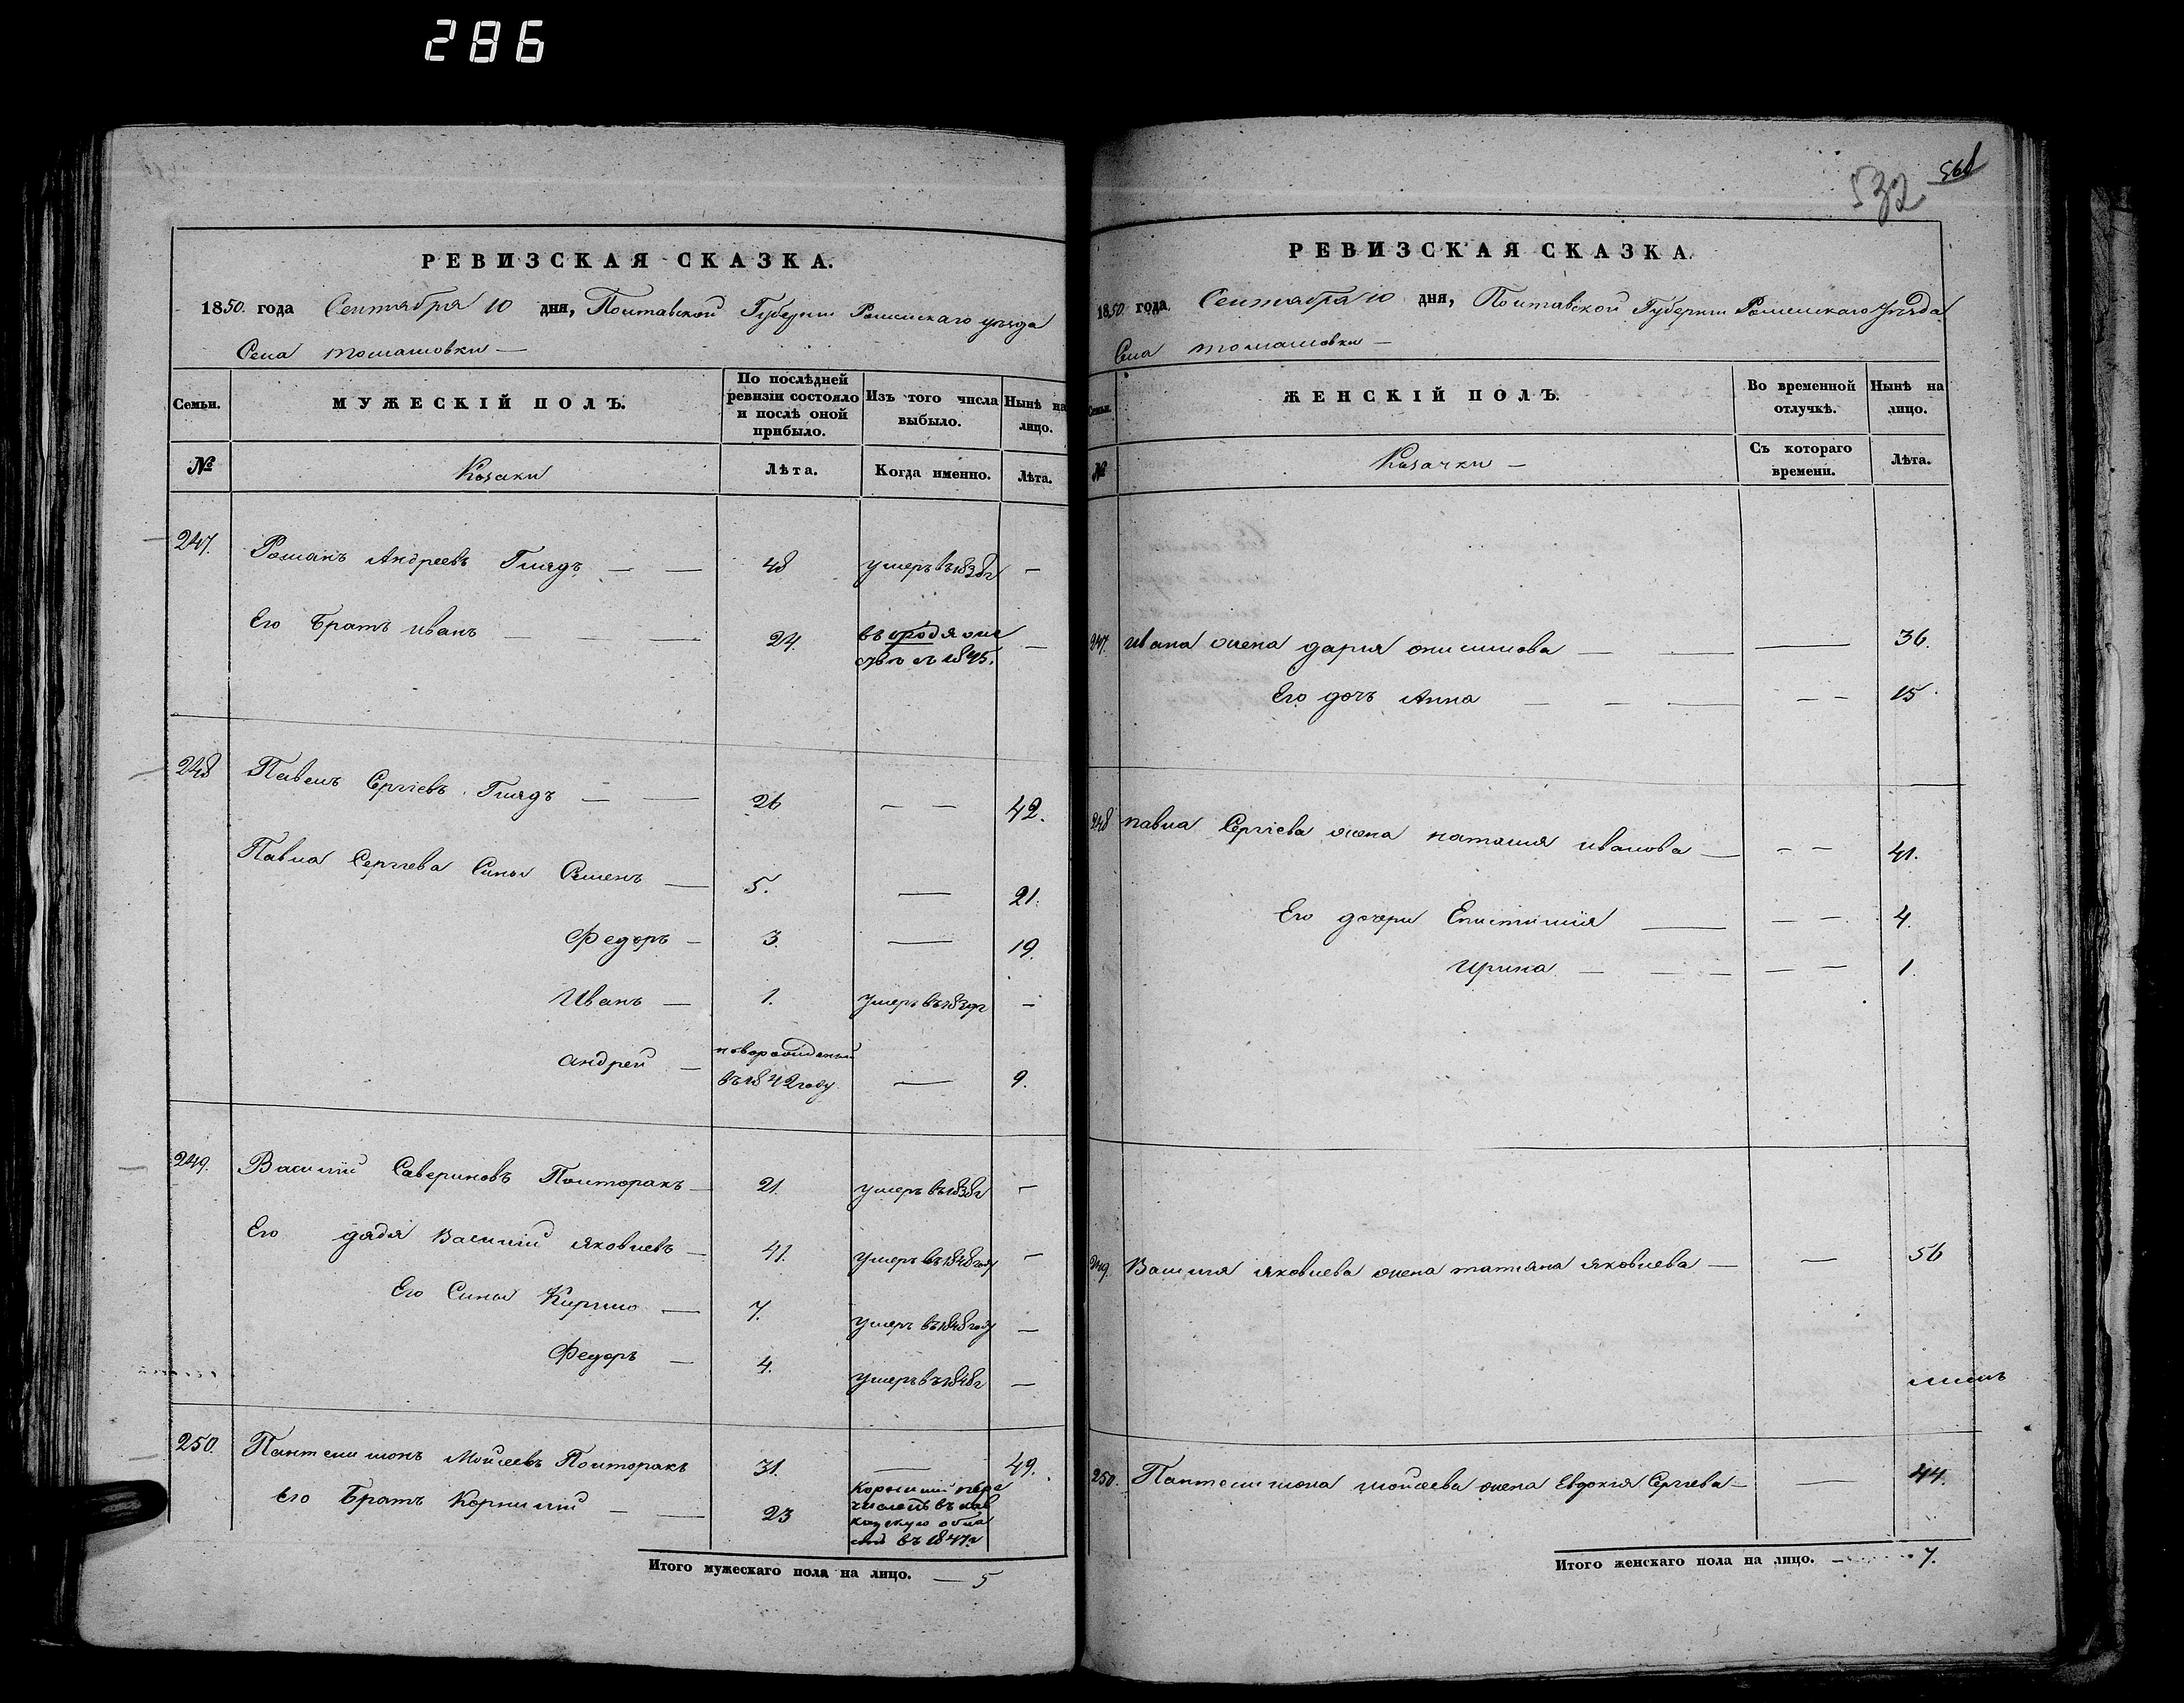 286
РЕВИЗСКАЯ СКАЗКА.
1850. года Сентября 10 дня, Полтавской Губернии Роменскаго уезда
Села томашовки —
Семьи. МУЖЕСКІЙ ПОЛЪ. По послѣдней ревизіи состояло и послѣ оной прибыло. Изъ того числа выбыло. Нынѣ на лицо.
№ Козаки Лѣта. Когда именно. Лѣта.
247. Романъ Андреевъ Глядъ — — 48 умеръ въ 1838г —
Его Братъ иванъ — — — 24. —
248 Павелъ Сергіевъ Глядъ — — 26 — — 42.
Павла Сергіева Сины Семенъ — 5. — 21.
Федоръ — 3. — 19.
Иванъ — 1. умеръ въ 1839г —
андрей — новорожденый
въ 1842 году — 9.
249. Василий Савериновъ Полторакъ — 21. умеръ въ 1838г —
Его дядя Василий яковлевъ — 41. умеръ въ 1848 году —
Его Сины Кирило — 7. умеръ въ 1848 году —
Федоръ — 4. умеръ въ 1848г —
250. Пантелимонъ Мойсеевъ Полторакъ 31. — 49.
его Братъ Корнилий — — 23 Корнилий пере
численъ въ кав
казскую обла
сть въ 1847г
Итого мужескаго пола на лицо. — 5
532
568
РЕВИЗСКАЯ СКАЗКА.
1850. года, Сентября 10 дня, Полтавской Губернии Роменскаго Уезда
Села томашовки —
Семьи. ЖЕНСКІЙ ПОЛЪ. Во временной отлучкѣ. Нынѣ на лицо.
№ Козачки — Съ котораго времени. Лѣта.
247. ивана жена дария онисимова — — — 36.
Его дочъ Анна — — — — — 15.
248 павла Сергіева жена наталия иванова — — — 41.
Его дочери Епистимия — — — 4.
Ирина — — — — — 1.
249. Василия яковлева жена татияна яковлева — — 56
250. Пантелимона мойсеева жена Евдокия Сергіева — — 44.
Итого женскаго пола на лицо. — 7.